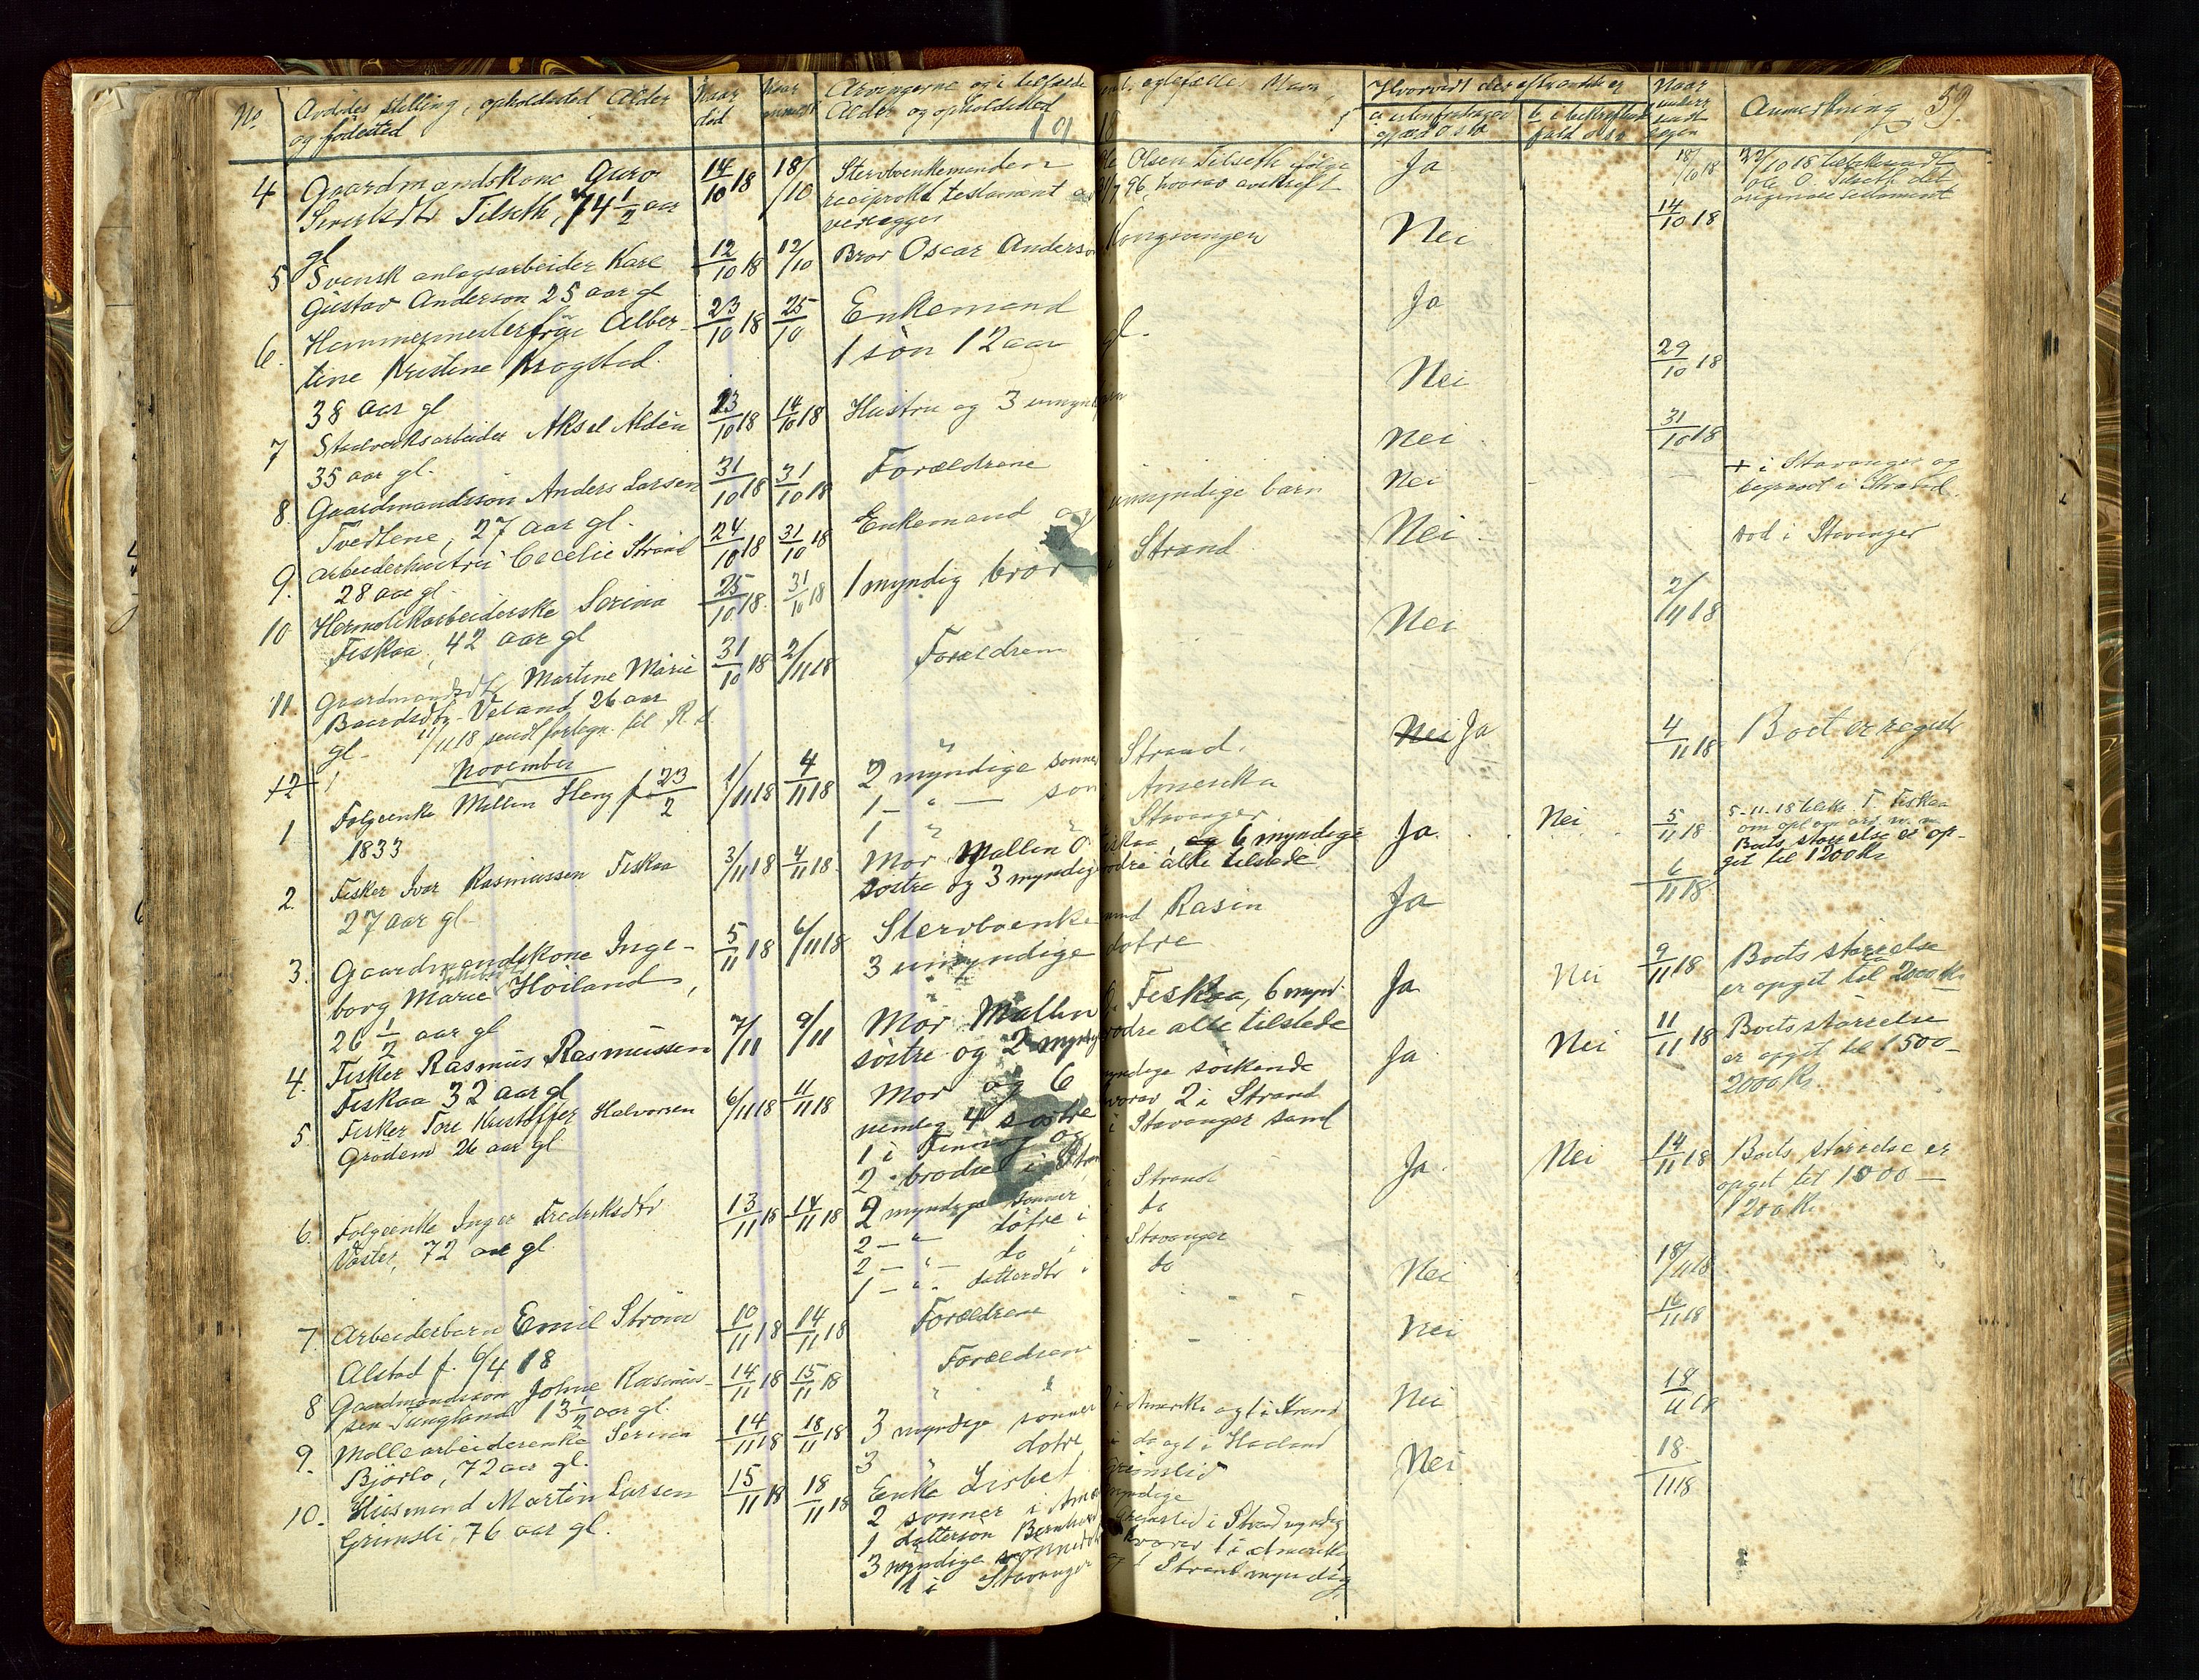 No. Avdødes stilling, opholdssted Alder og fødested | Naar død | Naar anmeldt | Arvingerne og i tilfælde Alder og opholdssted | Hvorvidt der efterverket er | Naar | Anmerkning 59.
4 Gaardmandskone Guro 14/10 18 18/10 Stervboenkemanden Ole Olsen Tilseth ifølge Ja 18/10 18 22/10 18
Sivertsdtr Tilseth, 74 1/2 aar reciprokt testament av 31/7 96, hvorav avskrift Ole O. Tilseth det
gl vedlegges originale testament
5 Svensk anlægsarbeider Karl 12/10 18 12/10 Bror Oscar Anderson Kongsvinger Nei 14/10 18
Gustav Anderson 25 aar gl
6. Hammermesterfrue Alber- 23/10 18 25/10 Enkemand Ja
tine Kristine Krogstad 1 søn 12 aar gl.
38 aar gl
7 Staalverksarbeider Aksel Aldén 23/10 18 14/10 18 Hustru og 3 umyndige Nei 29/10 18
35 aar gl.
8 Gaardmandssøn Anders Larsen 31/10 18 31/10 18 Forældrene Nei 31/10 18
Tvedtene, 27 aar gl.
9. Arbeiderhustru Cecelie Strand 24/10 18 31/10 18 Enkemand og umyndige barn Nei + i Stavanger og
28 aar gl. begravet i Strand.
10 Hermetikarbeiderske Serina 25/10 18 31/10 18 1 myndig bror i Strand Nei død i Stavanger
Fiskaa, 42 aar gl
11 Gaardmandsdtr Martine Marie 31/10 18 2/11 18 Forældrene Nei 2/11 18
Baardsdtr Veland 26 aar
gl. 11/11 18 sendt fortegn. til
12 November
1 Følgeenke Mallen Heng f 23/2 1/11 18 4/11 18 2 myndige sønner Strand. Nei Ja 4/11 18 Boet er regist
1833 1 — " — søn i Amerika
1 " Stavanger
2. Fisker Ivar Rasmussen Fiskaa 3/11 18 4/11 18 Mor Mallin O Fiskaa, og 6 myndige Ja. Nei 5/11 18 5-11-18 T. Fiskaa
27 aar gl søstre og 3 myndige brødre alle tilstede Boets størrelse er op-
get til 1200 Kr
3. Gaardmandskone Inge- 5/11 18 6/11 18 Stervboenkemand Rasm Ja 6/11 18
borg Marie Høiland, 3 umyndige døtre
26 1/2 aar gl
4. Fisker Rasmus Rasmussen 7/11 9/11 Mor Mallin O. Fiskaa, 6 mynd. Ja Nei 9/11 18 Boets størrelse
Fiskaa 32 aar gl søstre og 2 myndige brødre alle tilstede er opget til 2000 Kr
5. Fisker Tore Kristoffer Halvorsen 6/11 18 11/11 18 Mor og 6 myndige søskende Ja Nei 11/11 18 Boets størrelse
Grødem 26 aar gl nemlig 4 søstre hvorav 2 i Strand er opget til 1500 —
1 i Finnøy og 1 i Stavanger samt 2000 Kr.
2 brødre i Strand
6. Følgeenke Inger Fredriksdtr 13/11 18 14/11 18 2 myndige sønner i Strand Ja. Nei 14/11 18 Boets størrelse er
Vaster, 72 aar gl. 2 — " — døtre i do opget til 1000 —
2 — " — do i Stavanger 1200 Kr.
1 — " — datterdtr i do
7. Arbeiderbarn Emil Strøm 10/11 18 14/11 18 Forældrene Nei 18/11 18
Alstad f. 6/4 18
8 Gaardmandssøn Johne Rasmus- 14/11 18 15/11 18 Forældrene Nei 16/11 18
sen Tungland 13 1/2 aar gl.
9. Møllearbeiderenke Serina 14/11 18 18/11 18 3 myndige sønner 2 i Amerika og 1 i Strand Nei 18/11 18
Bjørlo, 72 aar gl. 3 " døtre i do og 1 i Haaland
10. Husmand Martin Larsen 15/11 18 18/11 18 Enke Lisbet Grimslid Nei 18/11 18
Grimsli, 76 aar gl. 2 sønner i Amerika myndige
1 dattersøn Bernhard Grimslid i Strand myndig
3 myndige sønnedøtre hvorav 1 i Amerika
1 i Stavanger og 1 i Strand myndig